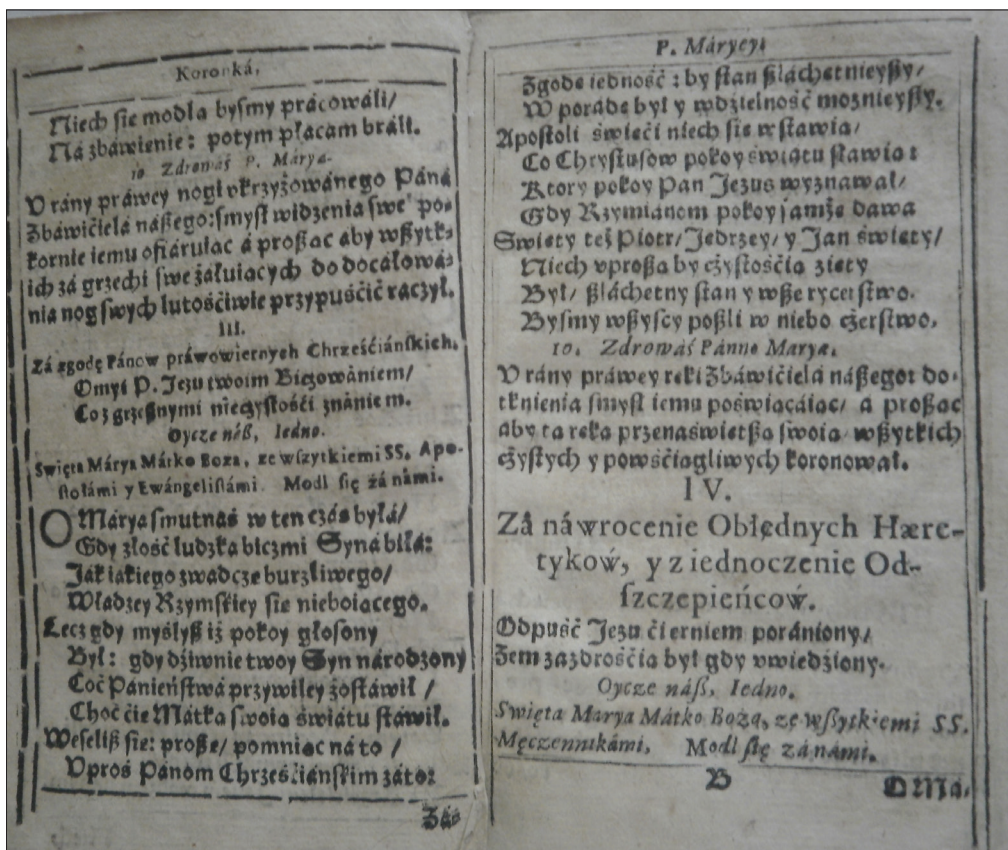 Koronká,
Niech sie modla bysmy prácowáli/
Ná zbáwienie: potym płacam bráli.
10 Zdrowáś P. Márya.
V rány práwey nogi vkrzyżowánego Páná
Zbáwićielá nášzego: smysł widzenia swe° po-
kornie iemu ofiáruiac á proszac aby wszytk-
ich zá grzechi swe żałuiących do docáłowá-
nia nog swych lutośćiwie przypuśćić raczył.
III.
Zá zgodę Pánow práwowiernych Chrześćiáńskich.
Omyi P. Jezu twoim Biczowániem/
Co z grzesznymi nieczystośći znániem.
Oycze náß, Iedno.
Swięta Márya Mátko Boza, ze wszytkiemi SS. Apo-
stołámi y Ewángelistámi. Modl się zá námi.
O Márya smutnaś w ten czás byłá/
Gdy złość ludzka biczmi Syná biłá:
Ják iákiego zwadcze burzliwego/
Władzey Rzymskiey sie nieboiącego.
Lecz gdy myślysz iż pokoy głosony
Był: gdy dźiwnie twoy Syn národzony
Coć Pánieństwá przywiley zostáwił /
Choć ćie Mátka swoia świátu stáwił.
Weselisz sie: prosze/ pomniac ná to /
Vproś Pánom Chrześćiáńskim záto:
Zás
P. Máryey.
Zgode iedność: by stan szláchetnieyszy/
W poráde był y wdźielność moznieyszy.
Apostoli święći niech sie wstawia/
Co Chrystusow pokoy świátu stáwia:
Ktory pokoy Pan Jezus wyznawał/
Gdy Rzymiánom pokoy samże dawa
Swięty też Piotr/ Jedrzey/ y Jan święty/
Niech vprosza by czystośćia zięty
Był/ szláchetny stan y wsze rycerstwo.
Bysmy wszyscy poszli w niebo czerstwo.
10. Zdrowáś Pánno Marya.
V rány práwey reki Zbáwićielá nászego: do-
tknienia smysł iemu poświącáiac/ á proszac
aby ta reka przenaświetsza swoia wszytkich
czystych y powśćiagliwych koronował.
IV.
Zá náwrocenie Obłędnych Hære-
tykow, y ziednoczenie Od-
szczepieńcow.
Odpuść Jezu ćierniem porániony/
Zem zazdrośćia był gdy vwiedźiony.
Oycze náß, Iedno.
Swięta Marya Mátko Bożą, ze wszytkiemi SS.
Męczennikámi, Modl się zá námi.
B O Ma.